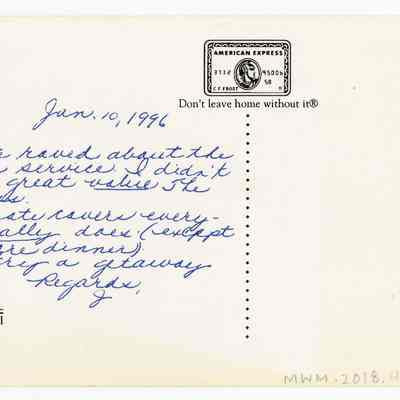 AMERICAN EXPRESS
3712
95006
C F FROST
Don't leave home without it®
Jan. 10, 1996
raved about the
service. I didn't
great value The
ate covers every-
ally does (except
dinner)
a getaway
Regards,
J
MWM.2018.